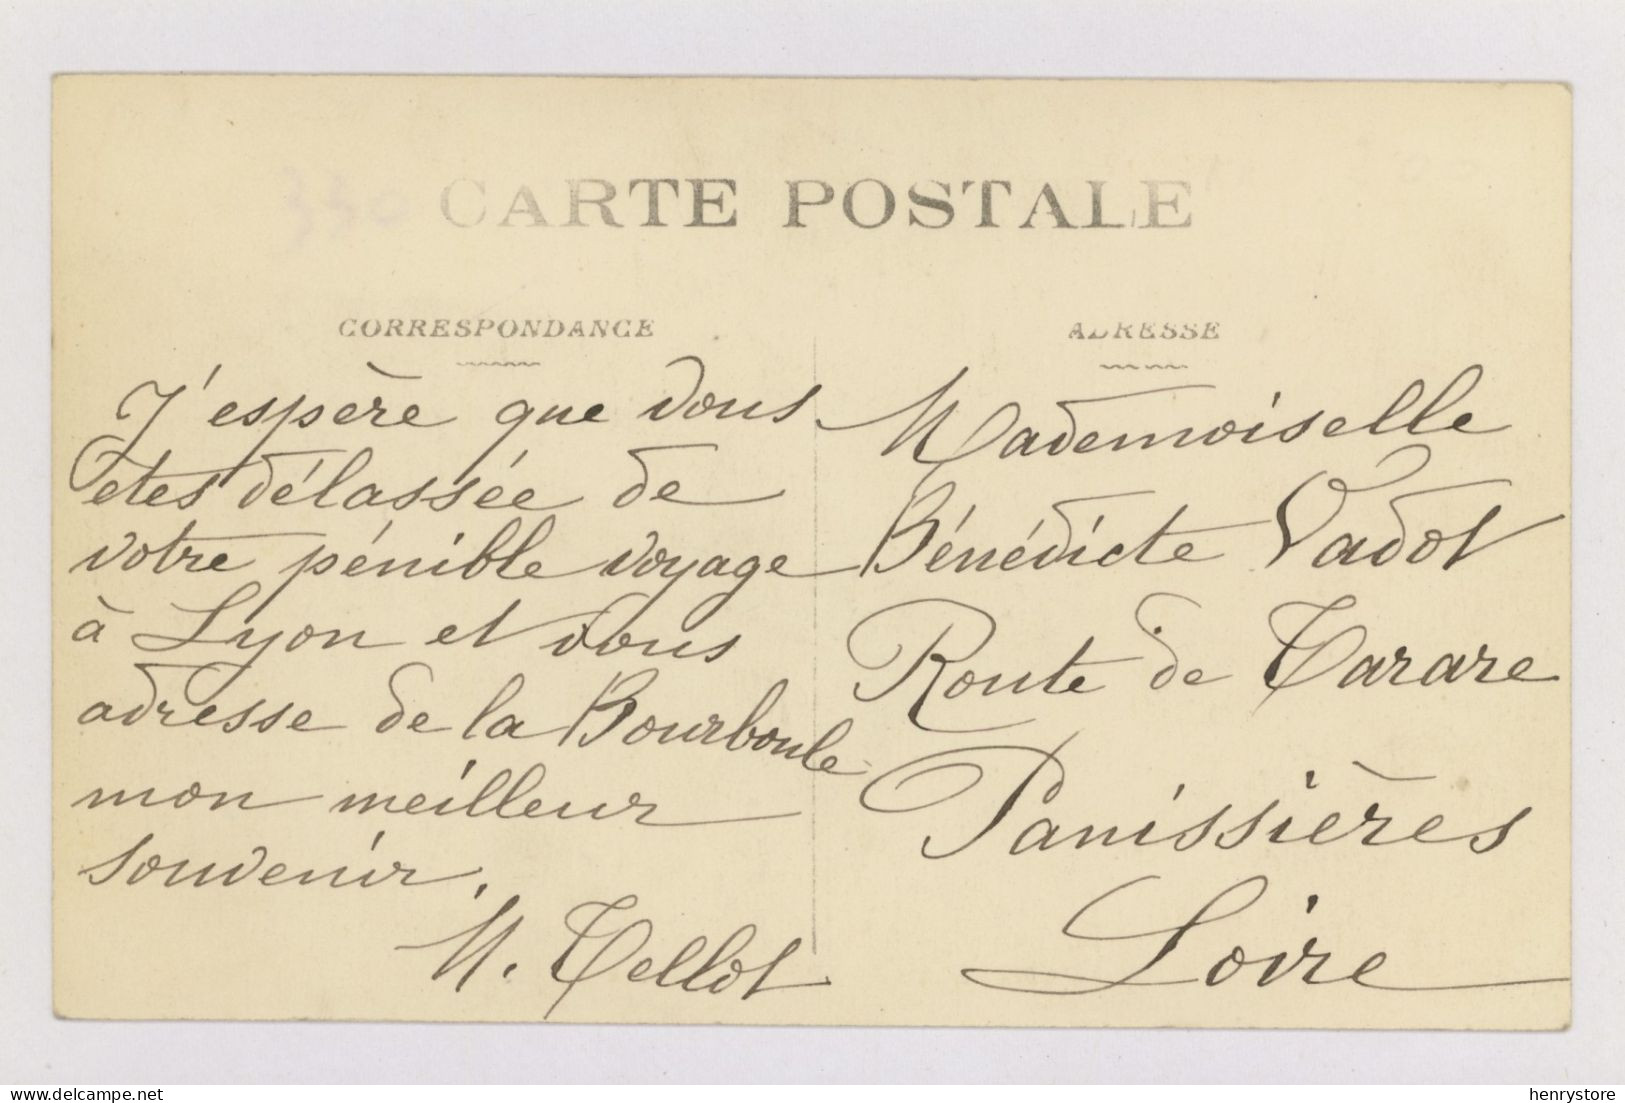 330
CARTE POSTALE
CORRESPONDANCE
J'espère que vous
etes délassée de
votre pénible voyage
à Lyon et vous
adresse de la Bourboule
mon meilleur
souvenir.
M. Tellot
ADRESSE
Mademoiselle
Bénédicte Vadot
Route de Tarare
Panissières
Loire
delcampe.net
henrystore